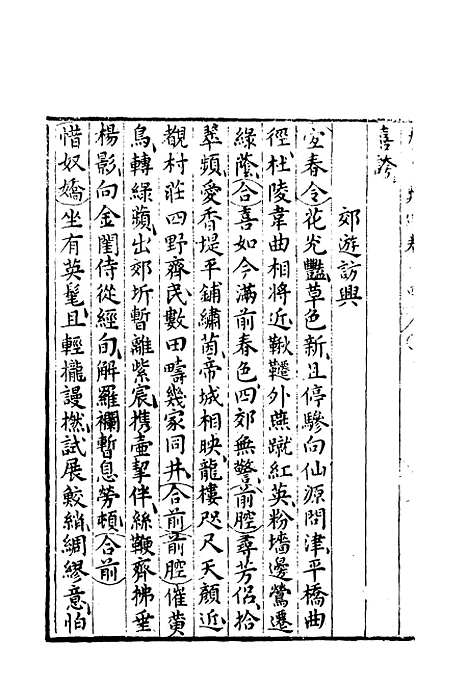 喜誇
郊遊訪興
宜春令花光豔草色新且停驂向仙源問津平橋曲
徑杜陵韋曲相將近鞦韆外燕蹴紅英粉墻邊鶯遷
綠蔭合喜如今滿前春色四郊無警前腔尋芳侶拾
翠頻愛香堤平鋪繡茵帝城相映龍樓咫尺天顏近
覩村莊四野齊民數田疇幾家同井合前前腔催黃
鳥轉綠蘋出郊圻暫離紫宸携壺挈伴絲鞭齊拂垂
楊影向金閨侍從經旬解羅襴暫息勞頓合前
惜奴嬌坐有英髦且輕攏謾撚試展鮫綃綢繆意怕